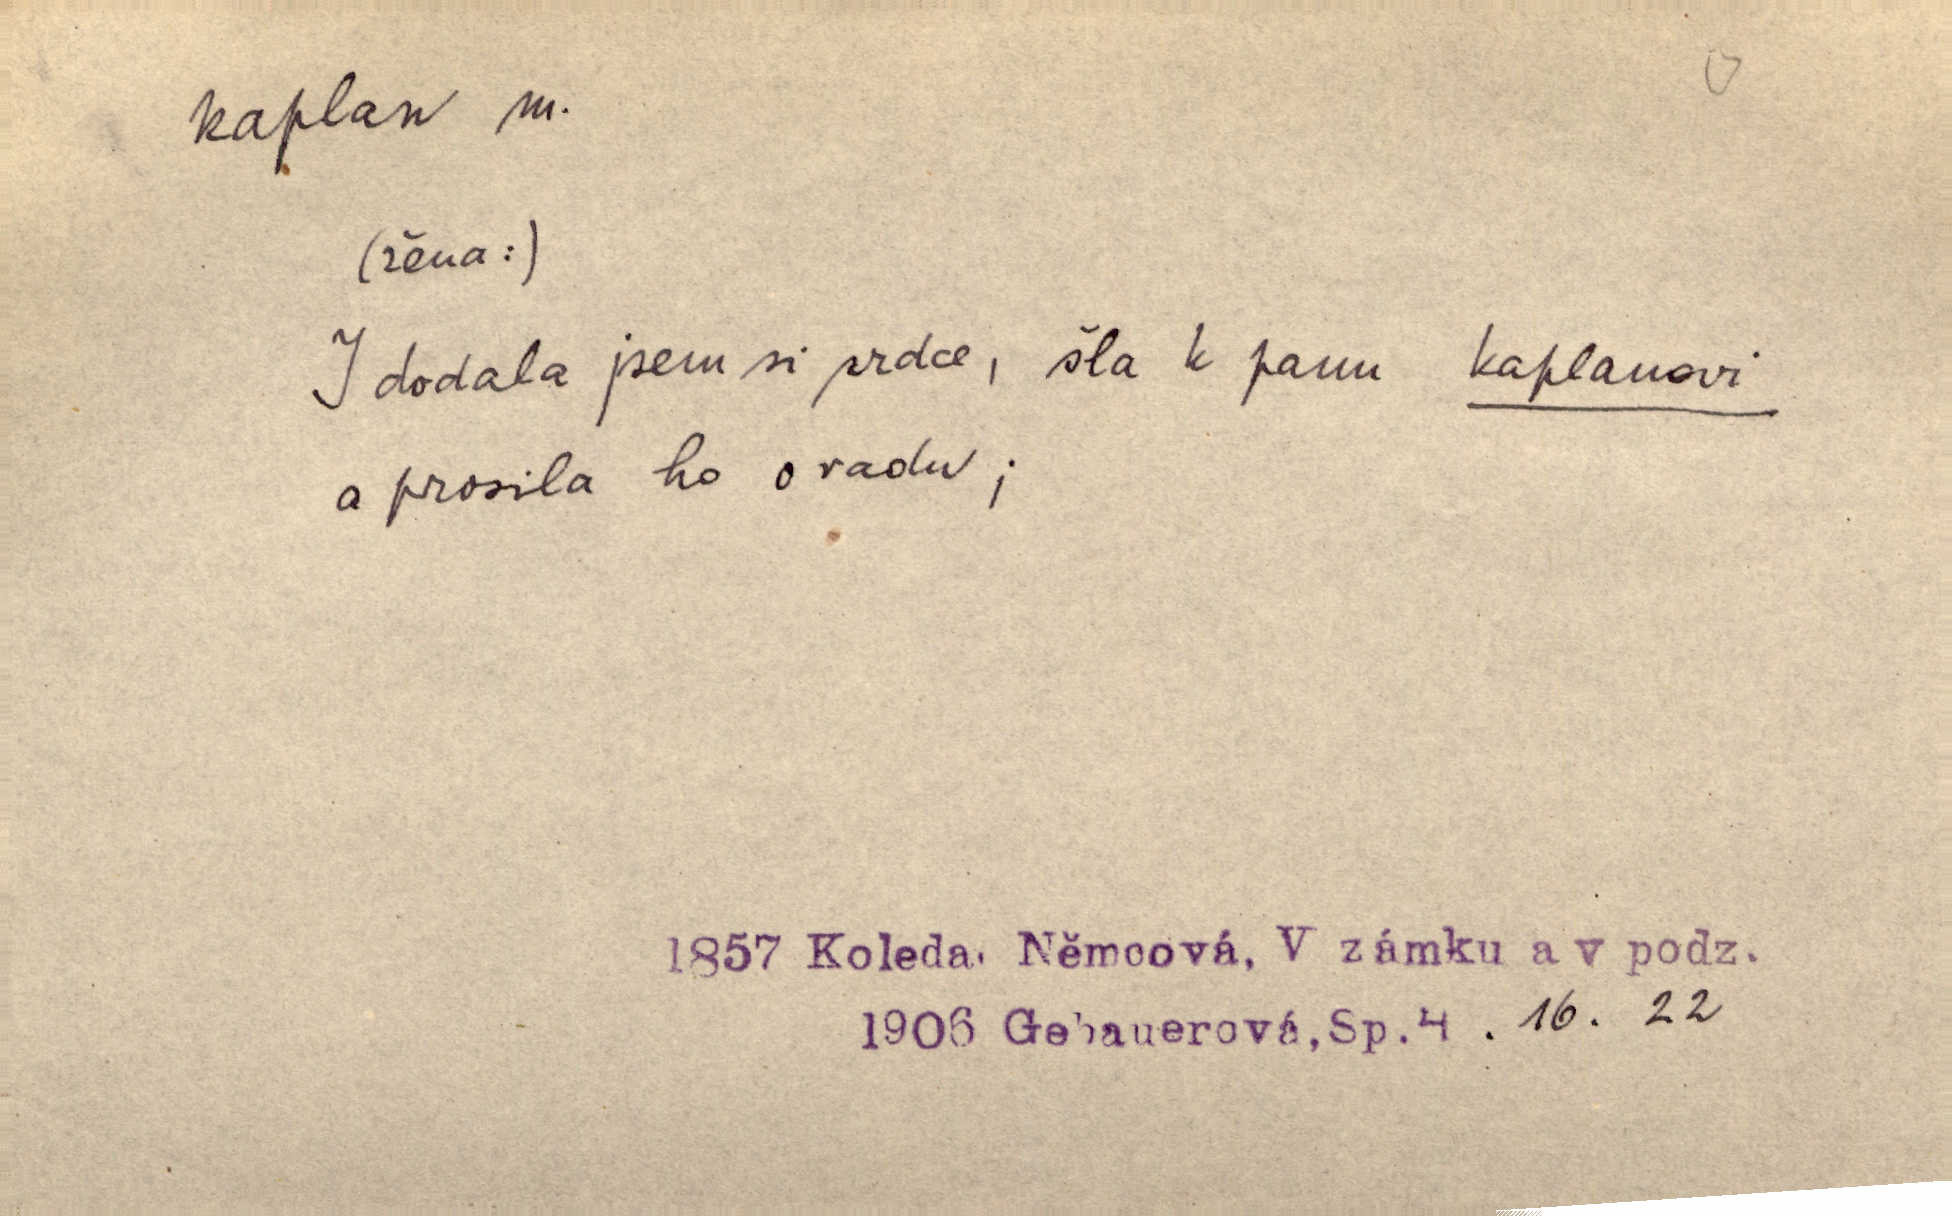 kaplan m.
(žena:)
I dodala jsem si srdce, šla k panu kaplanovi
a prosila ho o radu;
1857 Koleda. Němcová, V zámku a v podz.
1906 Gebauerová, Sp. 4 . 16. 22